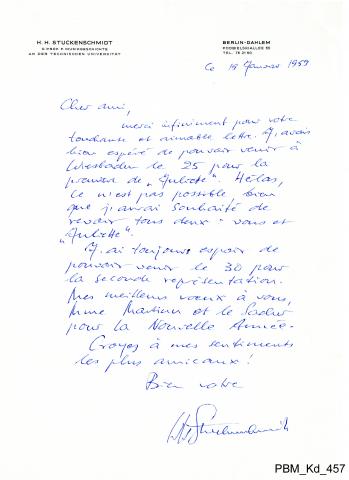 H. H. STUCKENSCHMIDT
O. PROF. F. MUSIKGESCHICHTE
AN DER TECHNISCHEN UNIVERSITÄT
BERLIN-DAHLEM
PODBIELSKIALLEE 65
TEL. 76 21 60
Ce 19 Janvier 1959
Cher ami,
merci infiniment pour votre
touchante et aimable lettre. J'avais
bien espéré de pouvoir venir à
Wiesbaden le 25 pour la
première de „Juliette". Hélas,
ce n'est pas possible bien
que j'aurai souhaité de
revoir tous deux: vous et
„Juliette".
J'ai toujours espoir de
pouvoir venir le 30 pour
la seconde représentation.
Mes meilleurs vœux à vous,
Mme Martinu et le Sacher
pour la Nouvelle Année.
Croyez à mes sentiments
les plus amicaux!
Bien votre
HHStuckenschmidt
PBM_Kd_457